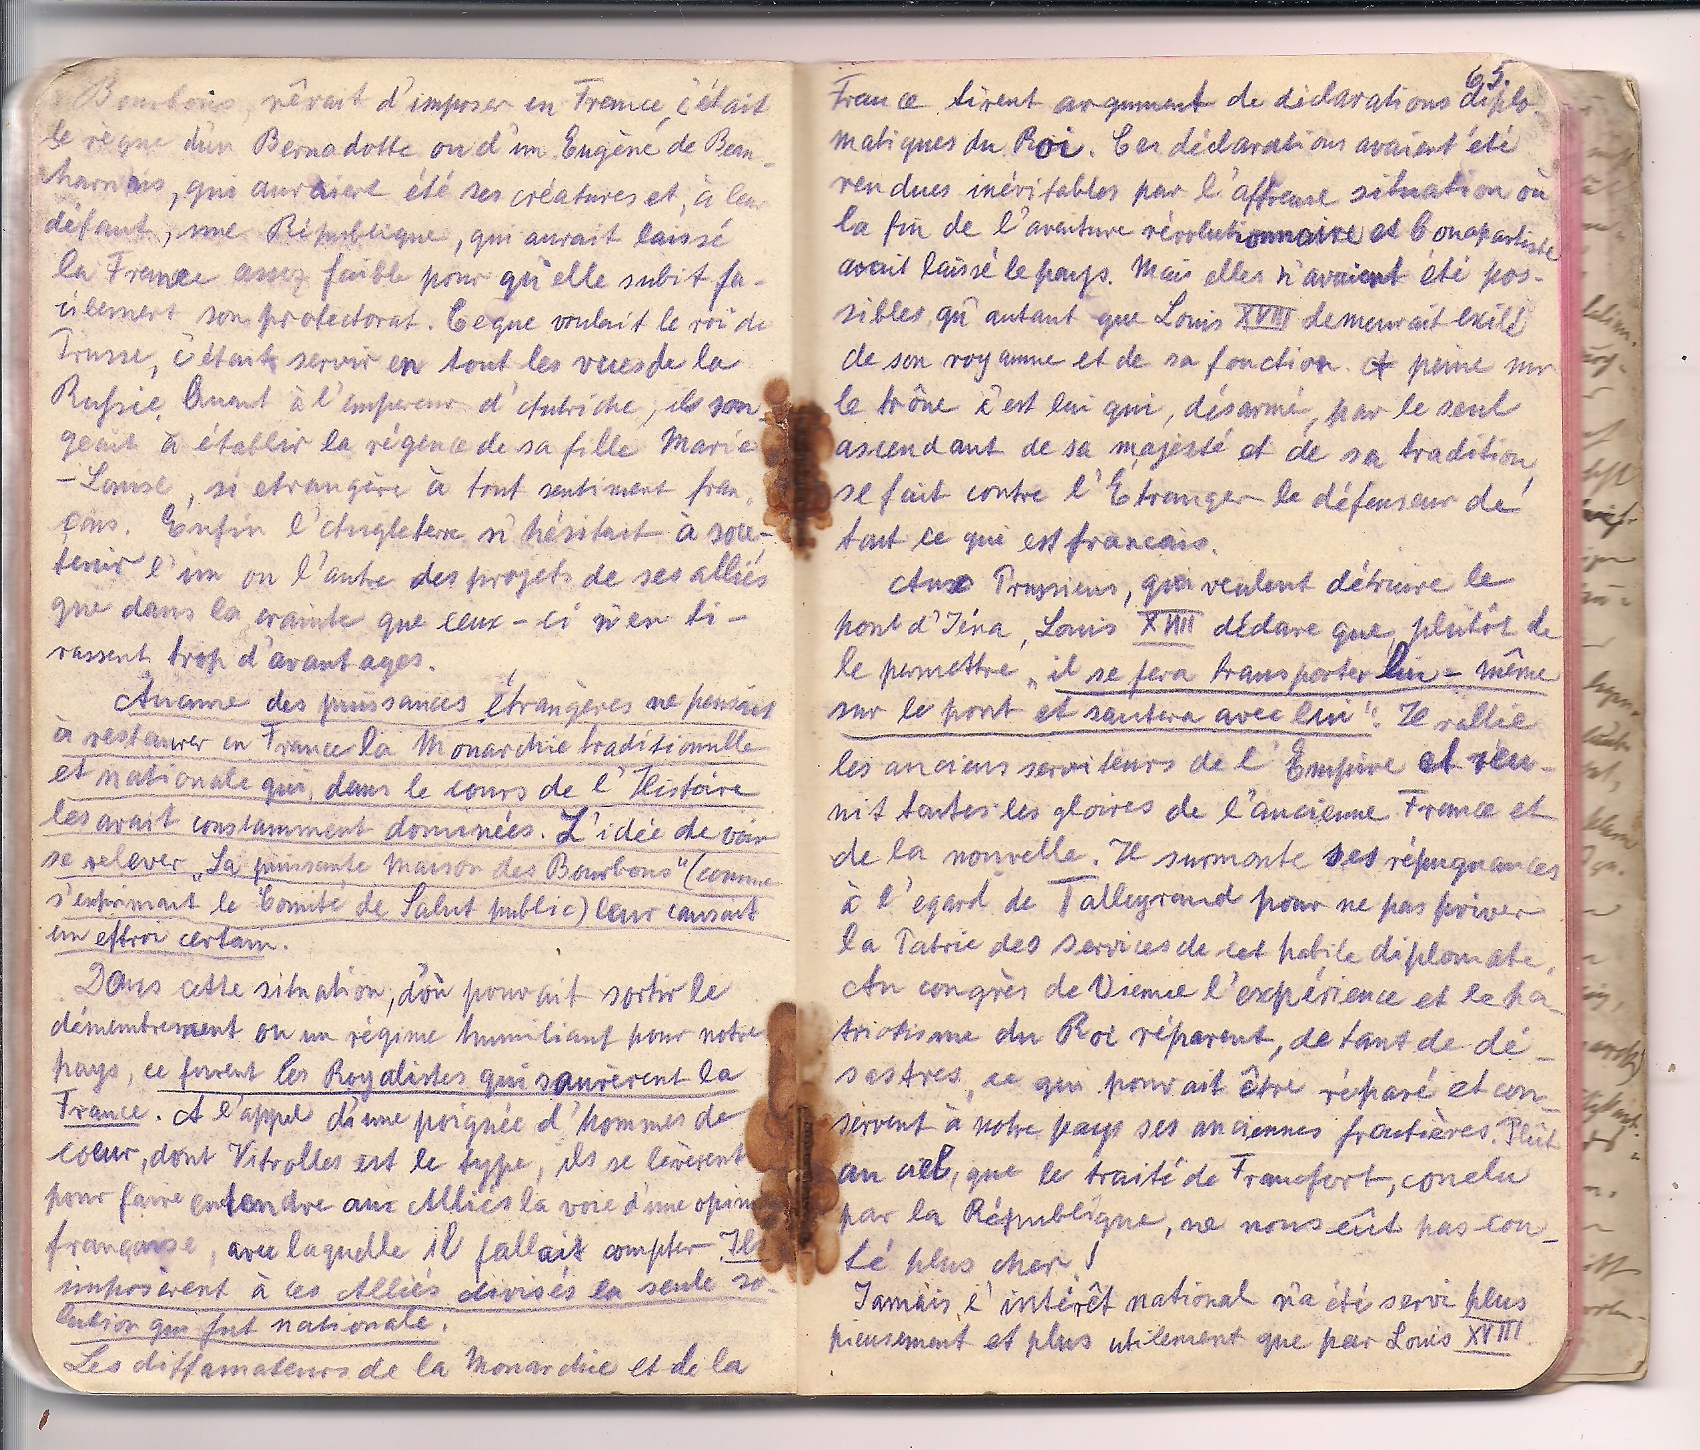 Bourbons, rêvait d'imposer en France, c'était
le règne d'un Bernadotte ou d'un Eugène de Beau-
harnais, qui auraient été ses créatures et, à leur
défaut, une République, qui aurait laissé
la France assez faible pour qu'elle subit fa-
cilement son protectorat. Ce que voulait le roi de
Prusse, c'était servir en tout les vues de la
Russie. Quant à l'empereur d'Autriche, il son-
geait à établir la régence de sa fille Marie
-Louise, si etrangère à tout sentiment fran-
çais. Enfin l'Angleterre n'hésitait à sou-
tenir l'un ou l'autre des projets de ses alliés
que dans la crainte que ceux-ci n'en ti-
rassent trop d'avantages.
Aucune des puissances étrangères ne pensait
à restaurer en France la Monarchie traditionnelle
et nationale qui, dans le cours de l'Histoire
les avait constamment dominées. L'idée de voir
se relever „La puissante Maison des Bourbons" (comme
s'exprimait le Comité de Salut public) leur causait
un effroi certain.
Dans cette situation, d'où pouvait sortir le
démembrement ou un régime humiliant pour notre
pays, ce furent les Royalistes qui sauvèrent la
France. A l'appel d'une poignée d'hommes de
coeur, dont Vitrolles est le type, ils se levèrent
pour faire entendre aux Alliés la voie d'une opinion
française, avec laquelle il fallait compter. Ils
imposèrent à ces Alliés divisés la seule so-
lution qui fut nationale.
Les diffamateurs de la Monarchie et de la
65.
France tirent argument de déclarations diplo-
matiques du Roi. Ces déclarations avaient été
rendues inévitables par l'affreuse situation où
la fin de l'aventure révolutionnaire et bonapartiste
avait laissé le pays. Mais elles n'avaient été pos-
sibles qu'autant que Louis XVIII demeurait exilé
de son royaume et de sa fonction. A peine sur
le trône c'est lui qui, désarmé, par le seul
ascendant de sa majesté et de sa tradition,
se fait contre l'Etranger le défenseur de
tout ce qui est français.
Aux Prussiens, qui veulent détruire le
pont d'Iéna, Louis XVIII déclare que, plutôt de
le permettre „il se fera transporter lui-même
sur le pont et sautera avec lui". Il rallie
les anciens serviteurs de l'Empire et réu-
nit toutes les gloires de l'ancienne France et
de la nouvelle. Il surmonte ses répugnances
à l'égard de Talleyrand pour ne pas priver
la Patrie des services de cet habile diplomate.
Au congrès de Vienne l'expérience et le pa-
triotisme du Roi réparent, de tant de dé-
sastres, ce qui pouvait être réparé et con-
servent à notre pays ses anciennes frontières. Plût
au ciel, que le traité de Francfort, conclu
par la République, ne nous eût pas coû-
té plus cher!
Jamais l'intérêt national n'a été servi plus
pieusement et plus utilement que par Louis XVIII.